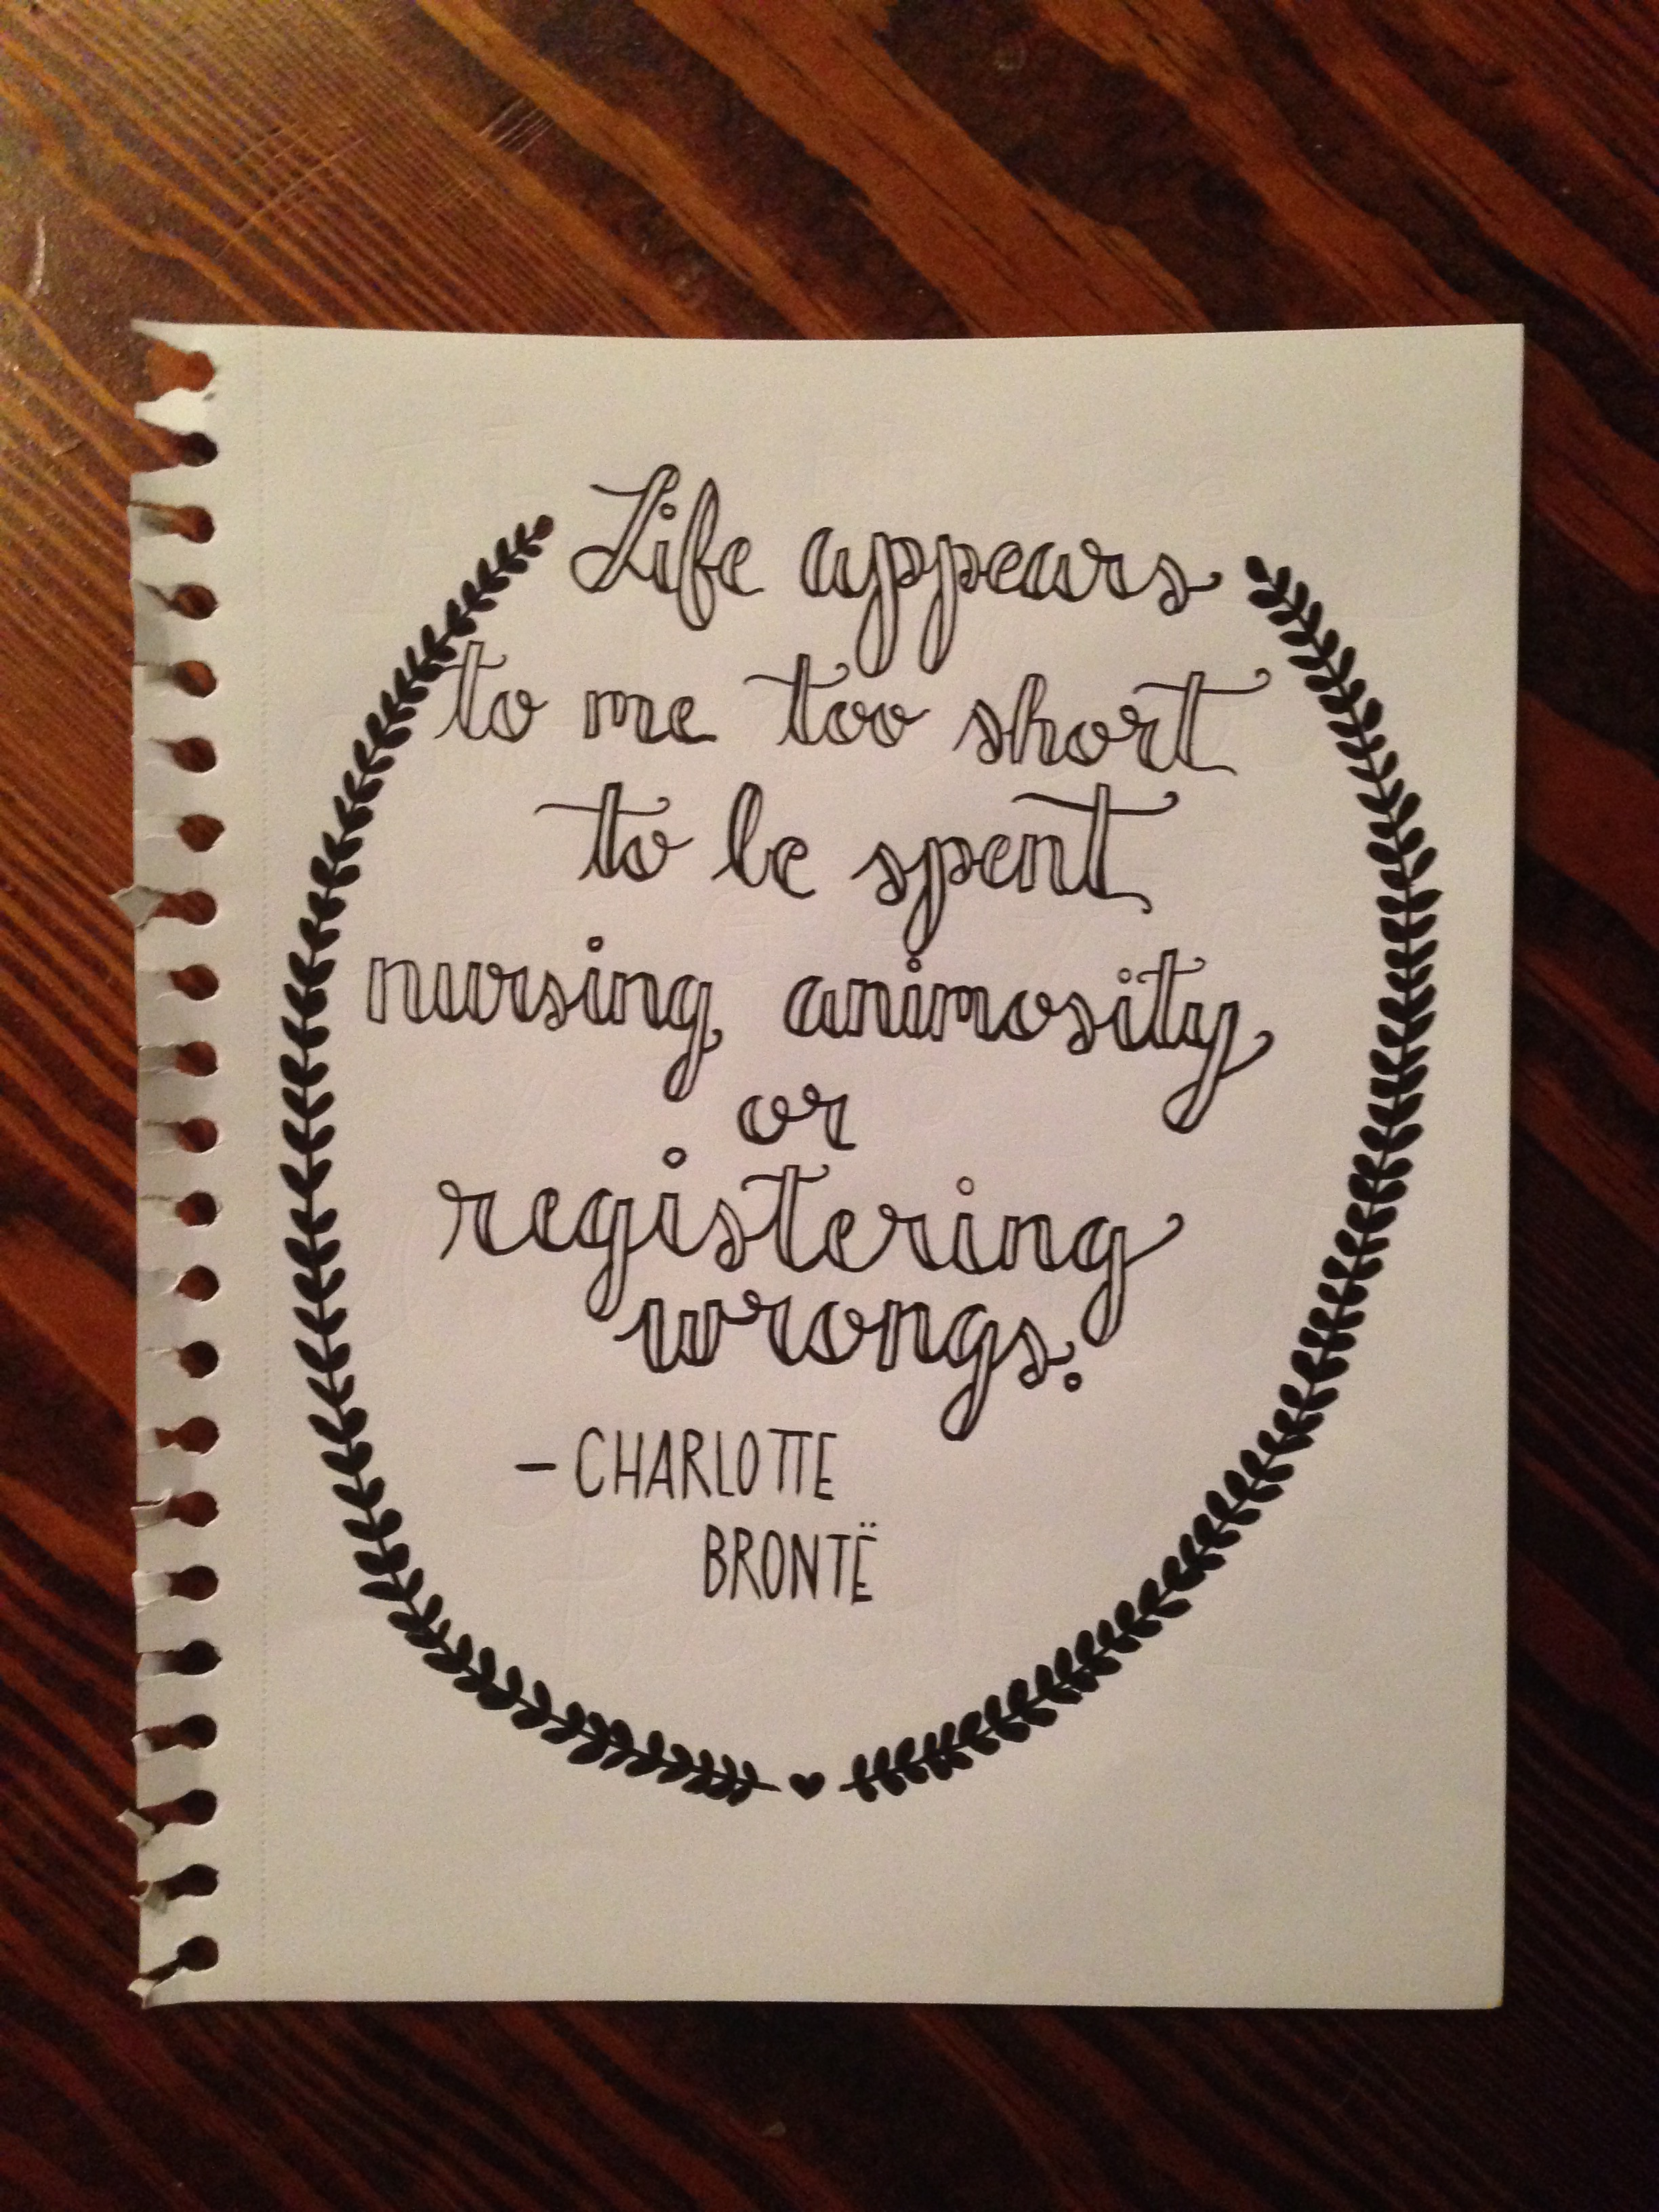 Life appears
to me too short
to be spent
nursing animosity
or
registering
wrongs.
– CHARLOTTE
BRONTË